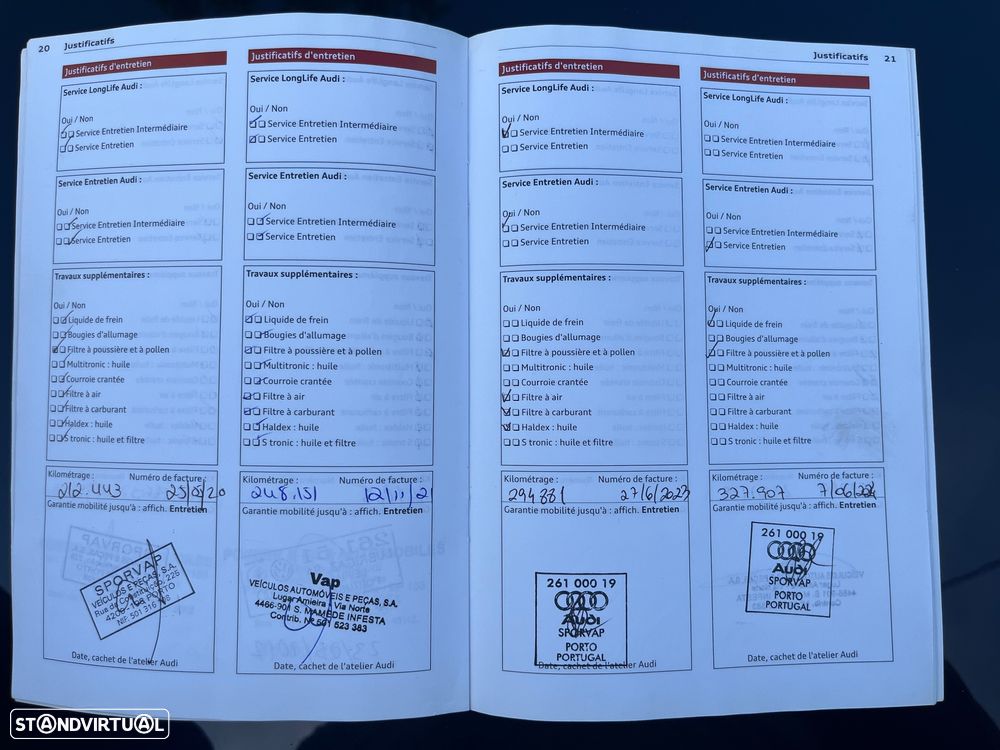 20 Justificatifs
Justificatifs d'entretien
Service LongLife Audi :
Oui / Non
Service Entretien Intermédiaire
Service Entretien
Service Entretien Audi :
Oui / Non
Service Entretien Intermédiaire
Service Entretien
Travaux supplémentaires :
Oui / Non
Liquide de frein
Bougies d'allumage
Filtre à poussière et à pollen
Multitronic : huile
Courroie crantée
Filtre à air
Filtre à carburant
Haldex : huile
S tronic : huile et filtre
Kilométrage : Numéro de facture :
212.443
Garantie mobilité jusqu'à : affich. Entretien
SPORVAP
VEÍCULOS E PEÇAS, S.A.
Rua da Constituição, 225
4200-198 PORTO
NIF: 501 316
Date, cachet de l'atelier Audi
Justificatifs d'entretien
Service LongLife Audi :
Oui / Non
Service Entretien Intermédiaire
Service Entretien
Service Entretien Audi :
Oui / Non
Service Entretien Intermédiaire
Service Entretien
Travaux supplémentaires :
Oui / Non
Liquide de frein
Bougies d'allumage
Filtre à poussière et à pollen
Multitronic : huile
Courroie crantée
Filtre à air
Filtre à carburant
Haldex : huile
S tronic : huile et filtre
Kilométrage : Numéro de facture :
248.151 12/11/21
Garantie mobilité jusqu'à : affich. Entretien
Vap
VEÍCULOS AUTOMÓVEIS E PEÇAS, S.A.
Lugar Amieira - Via Norte
4466-901 S. MAMEDE INFESTA
Contrib. Nº 501 523 383
Date, cachet de l'atelier Audi
Justificatifs 21
Justificatifs d'entretien
Service LongLife Audi :
Oui / Non
Service Entretien Intermédiaire
Service Entretien
Service Entretien Audi :
Oui / Non
Service Entretien Intermédiaire
Service Entretien
Travaux supplémentaires :
Oui / Non
Liquide de frein
Bougies d'allumage
Filtre à poussière et à pollen
Multitronic : huile
Courroie crantée
Filtre à air
Filtre à carburant
Haldex : huile
S tronic : huile et filtre
Kilométrage : Numéro de facture :
294881 27/6/2023
Garantie mobilité jusqu'à : affich. Entretien
261 000 19
Audi
SPORVAP
PORTO
PORTUGAL
Date, cachet de l'atelier Audi
Justificatifs d'entretien
Service LongLife Audi :
Oui / Non
Service Entretien Intermédiaire
Service Entretien
Service Entretien Audi :
Oui / Non
Service Entretien Intermédiaire
Service Entretien
Travaux supplémentaires :
Oui / Non
Liquide de frein
Bougies d'allumage
Filtre à poussière et à pollen
Multitronic : huile
Courroie crantée
Filtre à air
Filtre à carburant
Haldex : huile
S tronic : huile et filtre
Kilométrage : Numéro de facture :
327.907
Garantie mobilité jusqu'à : affich. Entretien
261 000 19
Audi
SPORVAP
PORTO
PORTUGAL
Date, cachet de l'atelier Audi
STANDVIRTUAL